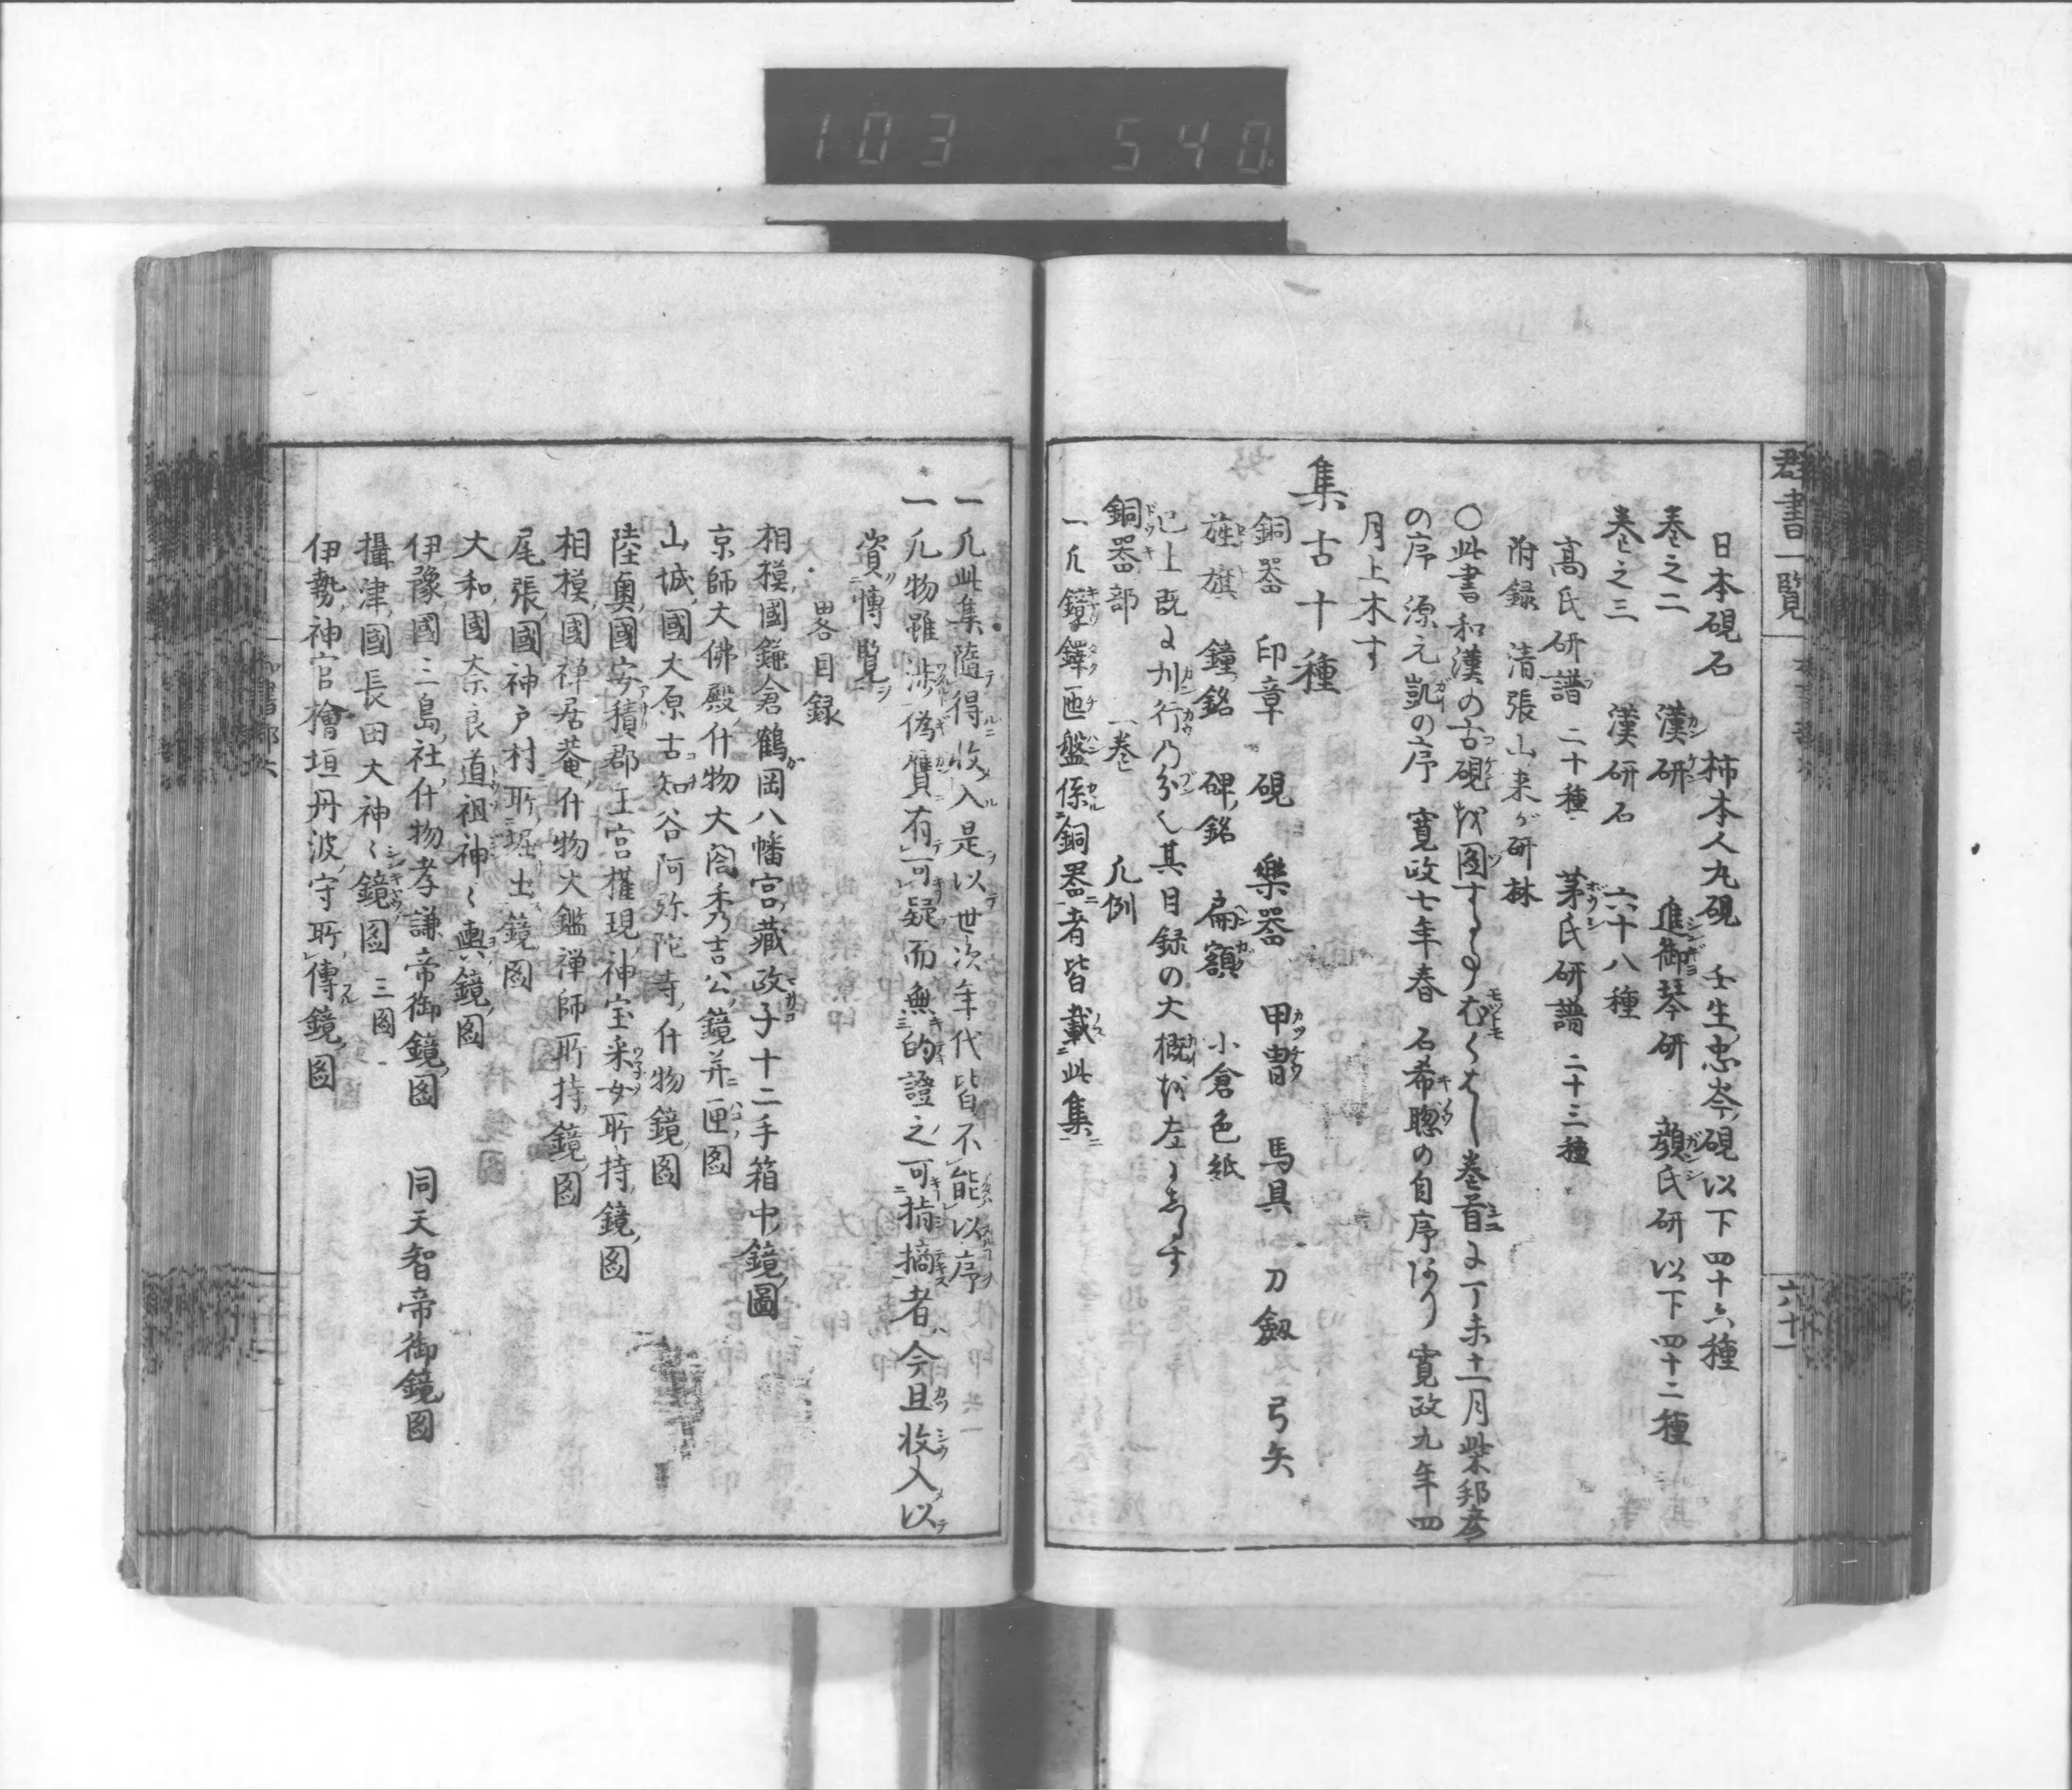 103 540
群書一覧
六十一
日本硯石 柿本人丸硯 壬生忠岑硯以下四十六種
巻之二 漢研 進御琴研 顔氏研以下四十二種
巻之三 漢研石 六十八種
高氏研譜 二十種 茅氏研譜 二十三種
附録 清張山来が研林
〇此書和漢の古硯を図する事もつともくはし巻首に丁未十一月柴邦彦
の序 源元凱の序 寛政七年春 石希聰の自序あり 寛政九年四
月上木す
集古十種
銅器 印章 硯 樂器 甲冑 馬具 刀劔 弓矢
旌旗 鐘銘 碑銘 扁額 小倉色紙
已上既に刋行乃分く其目録の大概を左にしるす
銅器部 一巻 凡例
一凡鐘鐸匜盤係銅器者皆載此集
一凡此集隨得收入是以世次年代皆不能以序
一凡物雖渉偽贋有可疑而無的證之可指摘者今且收入以
資博覧
畧目録
相模國鎌倉鶴岡八幡宮藏政子十二手箱中鏡圖
京師大佛殿什物大閤秀吉公鏡并匣図
山城國大原古知谷阿弥陀寺什物鏡図
陸奥國安積郡王宮権現神宝采女所持鏡図
相模國禅居菴什物大鑑禅師所持鏡図
尾張國神戸村所堀土鏡図
大和國奈良道祖神々輿鏡図
伊豫國三島社什物孝謙帝御鏡図 同天智帝御鏡図
攝津國長田大神々鏡図 三図
伊勢神官檜垣丹波守所傳鏡図